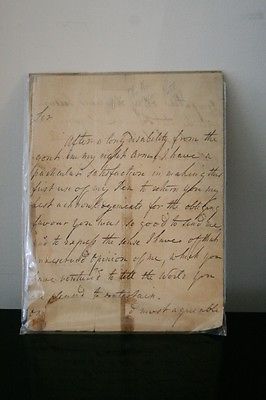 Sir
After a long disability from the
gout in my right Arm, I have a
particular satisfaction in making the
first use of my Pen to return you my
best acknowledgements for the obliging
favour you was so good to send me,
to express the sense I have of that
opinion of me, which you
have ventured to tell the World you
to entertain.
most agreeable